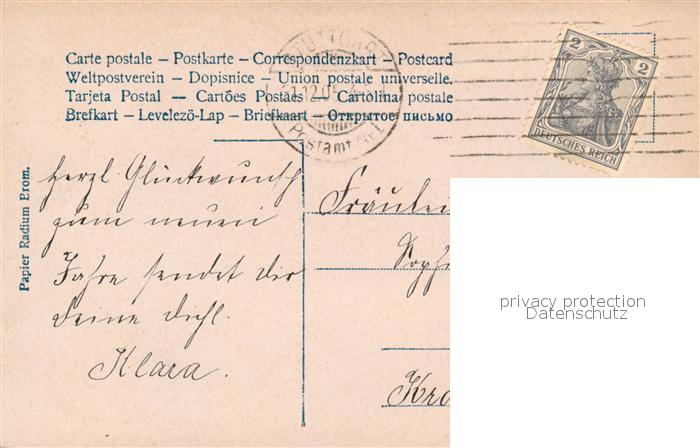 Carte postale – Postkarte – Correspondenzkart – Postcard
Weltpostverein – Dopisnice – Union postale universelle.
Tarjeta Postal — Cartões Postaes – Cartolina postale
Brefkart – Levelező-Lap – Briefkaart – Открытое письмо
STUTTGART
31.12.05
Postamt
2 2
DEUTSCHES REICH
Papier Radium Erom.
Herzl. Glückwunsch
zum neuen
Jahre sendet dir
deine
Klara.
Fräulei
Soph
Kro
privacy protection
Datenschutz